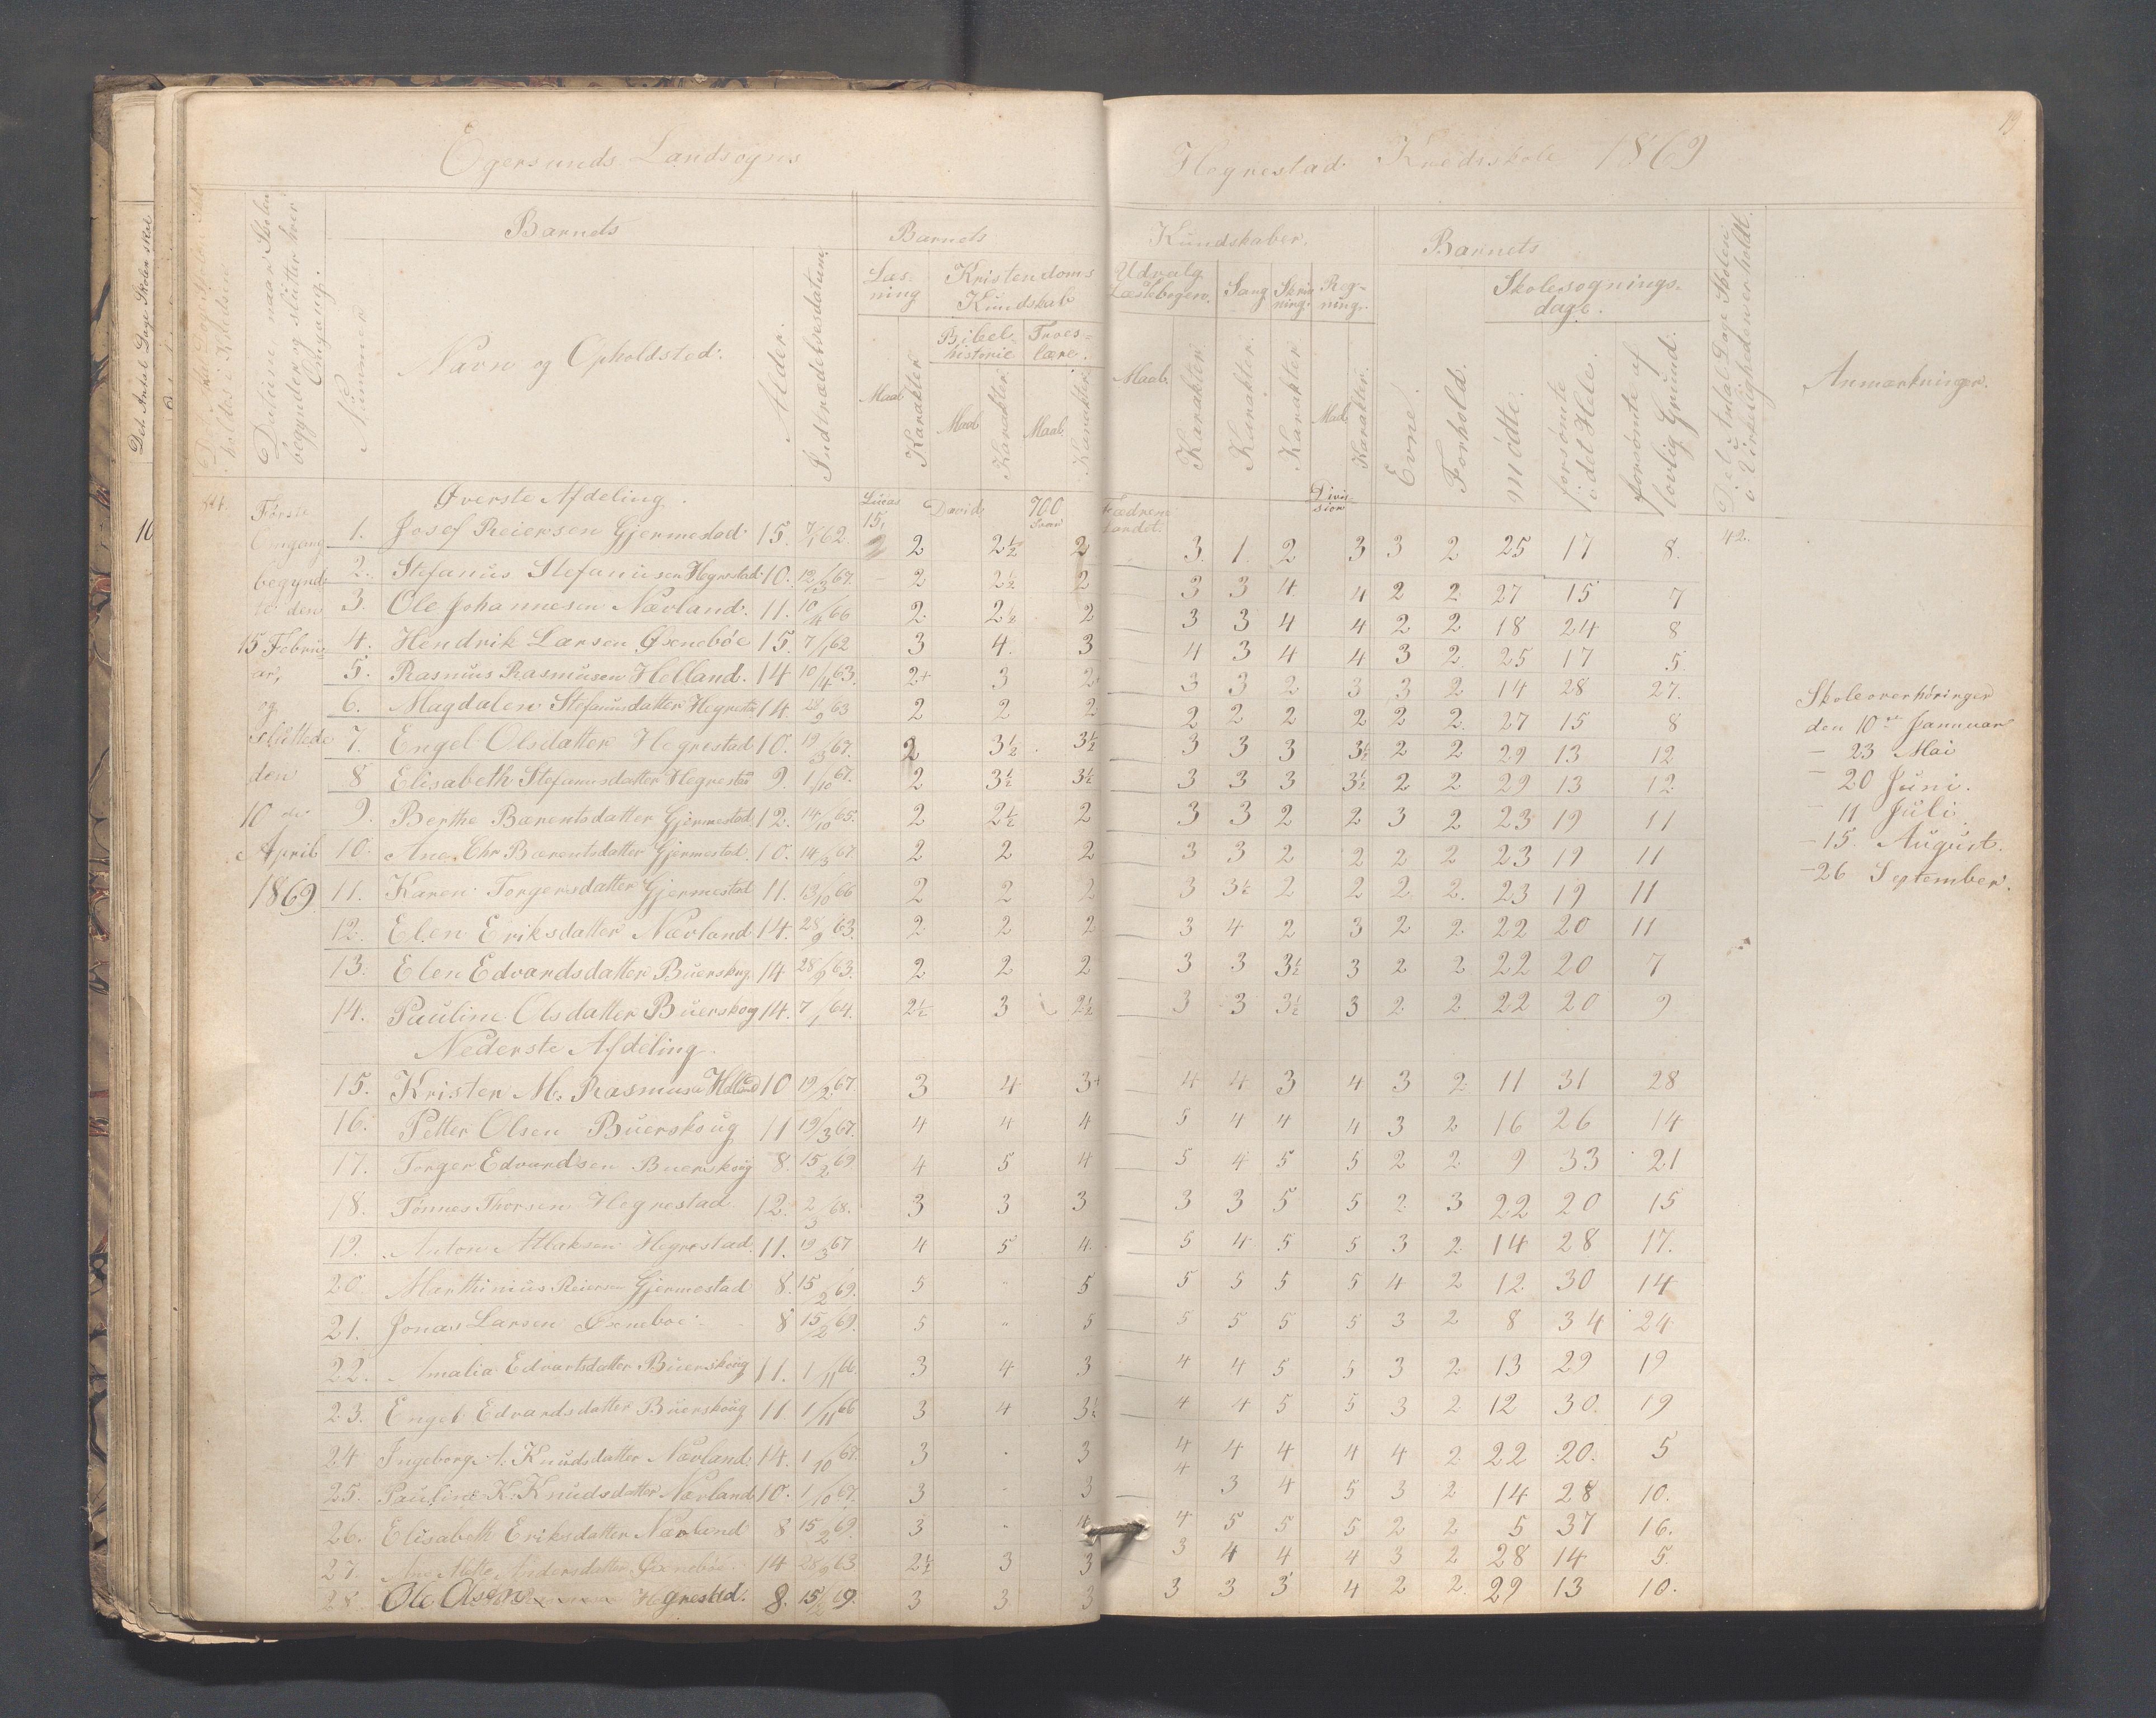 Egersunds Landsogns
Hegrestad Kredsskole 1869
19
Det Antal Dage Skolen skal
holdes i Kredsen
Datum, naar Skolen
begynder og slutter hver
Omgang.
Barnets
Nummer
Navn og Opholdsted.
Alder.
Indtrædelsesdatum.
Barnets
Kundskaber.
Læs-
ning
Kristendoms
Kundskab
Bibel-
historie
Troes-
lære.
Maal
Karakter
Maal
Karakter.
Maal.
Karakter.
Udvalg
Læsebogen.
Sang
Skriv
ning.
Reg-
ning.
Maal.
Karakter.
Karakter.
Karakter
Maal
Karakter.
Barnets
Evne.
Forhold.
Skolesøgnings-
dage.
mødte.
forsømte
i det Hele.
forsømte af
lovlig Grund.
Det Antal Dage Skolen
i Virkeligheden er holdt.
Anmærkninger.
Første
Omgang
begynd-
te den
15 Febru-
ar,
og
sluttede
den
10 de
April
1869
Øverste Afdeling.
Lucas
15,
David.
700
Svar
Fædrene
landet.
Divi-
sion
1. Josef Reiersen Gjermestad 15. 7/1 62. 2 2½ 2 3. 1. 2 3 3 2 25 17 8. 42.
2. Stefanus Stefanusen Hegrestad 10. 12/3 67. 2 2½ 2 3 3 4 4 2 2 27 15 7
3. Ole Johannesen Nævland. 11. 10/4 66 2 2½ 2 3 3 4 4 2 2 18 24 8
4. Hendrik Larsen Øsenebøe 15. 7/1 62 3 4. 3 4 3 4 4 3 2 25 17 5.
5. Rasmus Rasmusen Helland. 14 10/4 63. 2+ 3 2+ 3 3 2 3 3 2 14 28 27.
6. Magdalen Stefanusdatter Hegrestad 14. 28/9 63 2 2 2 2 2 2 2 2 2. 27 15 8
7. Engel Olsdatter Hegrestad 10. 19/3 67. 2 3½ 3½ 3 3 3 3½ 2 2 29 13 12
8 Elisabeth Stefanusdatter Hegrestad 9. 1/10 67. 2 3½ 3½ 3 3 3 3½ 2 2 29 13 12
9. Berthe Bærentsdatter Gjermestad 12. 14/10 65. 2 2½ 2 3 3 2 2 3 2 23 19 11
10. Ane Chr Bærentsdatter Gjermestad. 10. 14/3 67 2 2 2 3 3 2 2 2 2 23 19 11
11. Karen Torgersdatter Gjermestad 11. 13/10 66 2 2 2 3 3½ 2 2 2 2. 23 19 11
12. Elen Eriksdatter Nævland 14. 28/9 63. 2 2 2 3 4 2 3 2 2 22 20 11
13. Elen Edvardsdatter Buerskog 14 28/9 63. 2 2 2 3 3 3½ 3 2 2 22 20 7
14. Pauline Olsdatter Buerskog 14. 7/1 64. 2½ 3 2½ 3 3 3½ 3 2 2 22 20 9
Nederste Afdeling.
15. Kristen M. Rasmusen Helland 10 19/2 67. 3 4 3+ 4 4 3 4 3 2 11 31 28
16. Petter Olsen Buerskoug 11 19/3 67. 4 4 4 5 4 4 4 3 2 16 26 14
17. Torger Edvardsen Buerskoug 8. 15/2 69 4 5 4 5 4 5 5 2 2 9 33 21
18. Tønnes Thorsen Hegrestad 12. 2/3 68. 3 3 3 3 3 5 5 2 3 22 20 15
19. Anton Atlaksen Hegrestad. 11. 19/3 67 4 5 4. 5 4 5 5 3 2 14 28 17.
20 Marthinius Reiersen Gjermestad 8. 15/2 69. 5 " 5 5 5 5 5 4 2 12. 30 14
21. Jonas Larsen Øseneboe 8 15/2 69. 5 " 5 5 5 5 5 3 2 8 34 24
22. Amalia Edvartsdatter Buerskoug 11. 1/11 66. 3 4 3 4 4 5 5 3 2 13 29 19
23. Engel Edvardsdatter Buerskoug 11. 1/11 66 3 4 3½ 4 4 5 5 3 2 12 30. 19
24 Ingeborg A. Knudsdatter Nævland 14. 1/10 67. 3 . 3 4 4 4 4 4 2 22 20. 5
25. Pauline K. Knudsdatter Nævland 10. 1/10 67. 3 . 3 4 3 4 5 3 2 14 28 10.
26. Elisabeth Eriksdatter Nævland 8 15/2 69. 3 . 4 4 5 5 5 2 2 5 37 16.
27. Ane Mette Andersdatter Øseneboe 14 28/9 63 2½ 3 3 3 4 4 4 3 2 28 14 5.
28. Ole Olsen Hegrestad. 8. 15/2 69. 3 3 3 3 3 3 4 2 2. 29 13 10.
Skoleoverhøringer
den 10de Januar
- 23 Mai
- 20 Juni.
- 11 Juli.
- 15. August.
- 26 September.